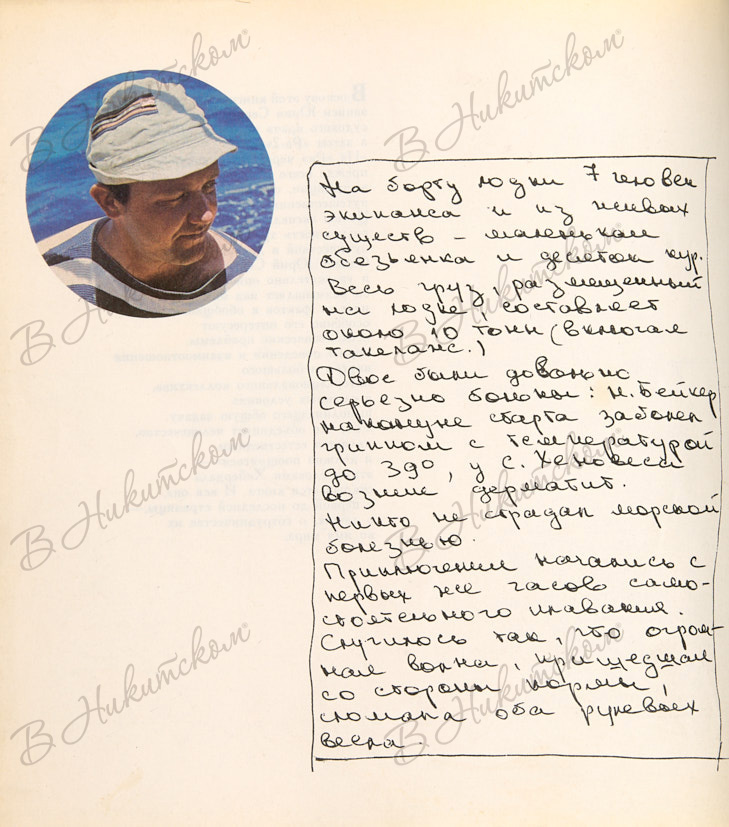 На борту лодки 7 человек
экипажа и из живых
существ – маленькая
обезьянка и десяток кур.
Весь груз, размещенный
на лодке, составляет
около 10 тонн (включая
такелаж.)
Двое были довольно
серьезно больны: Н. Бейкер
накануне старта заболел
гриппом с температурой
до 39°, у С. Хеновеса
возник дерматит.
Никто не страдал морской
болезнью.
Приключения начались с
первых же часов само-
стоятельного плавания.
Случилось так, что огром-
ная волна, пришедшая
со стороны кормы,
сломала оба рулевых
весла.
В Никитском